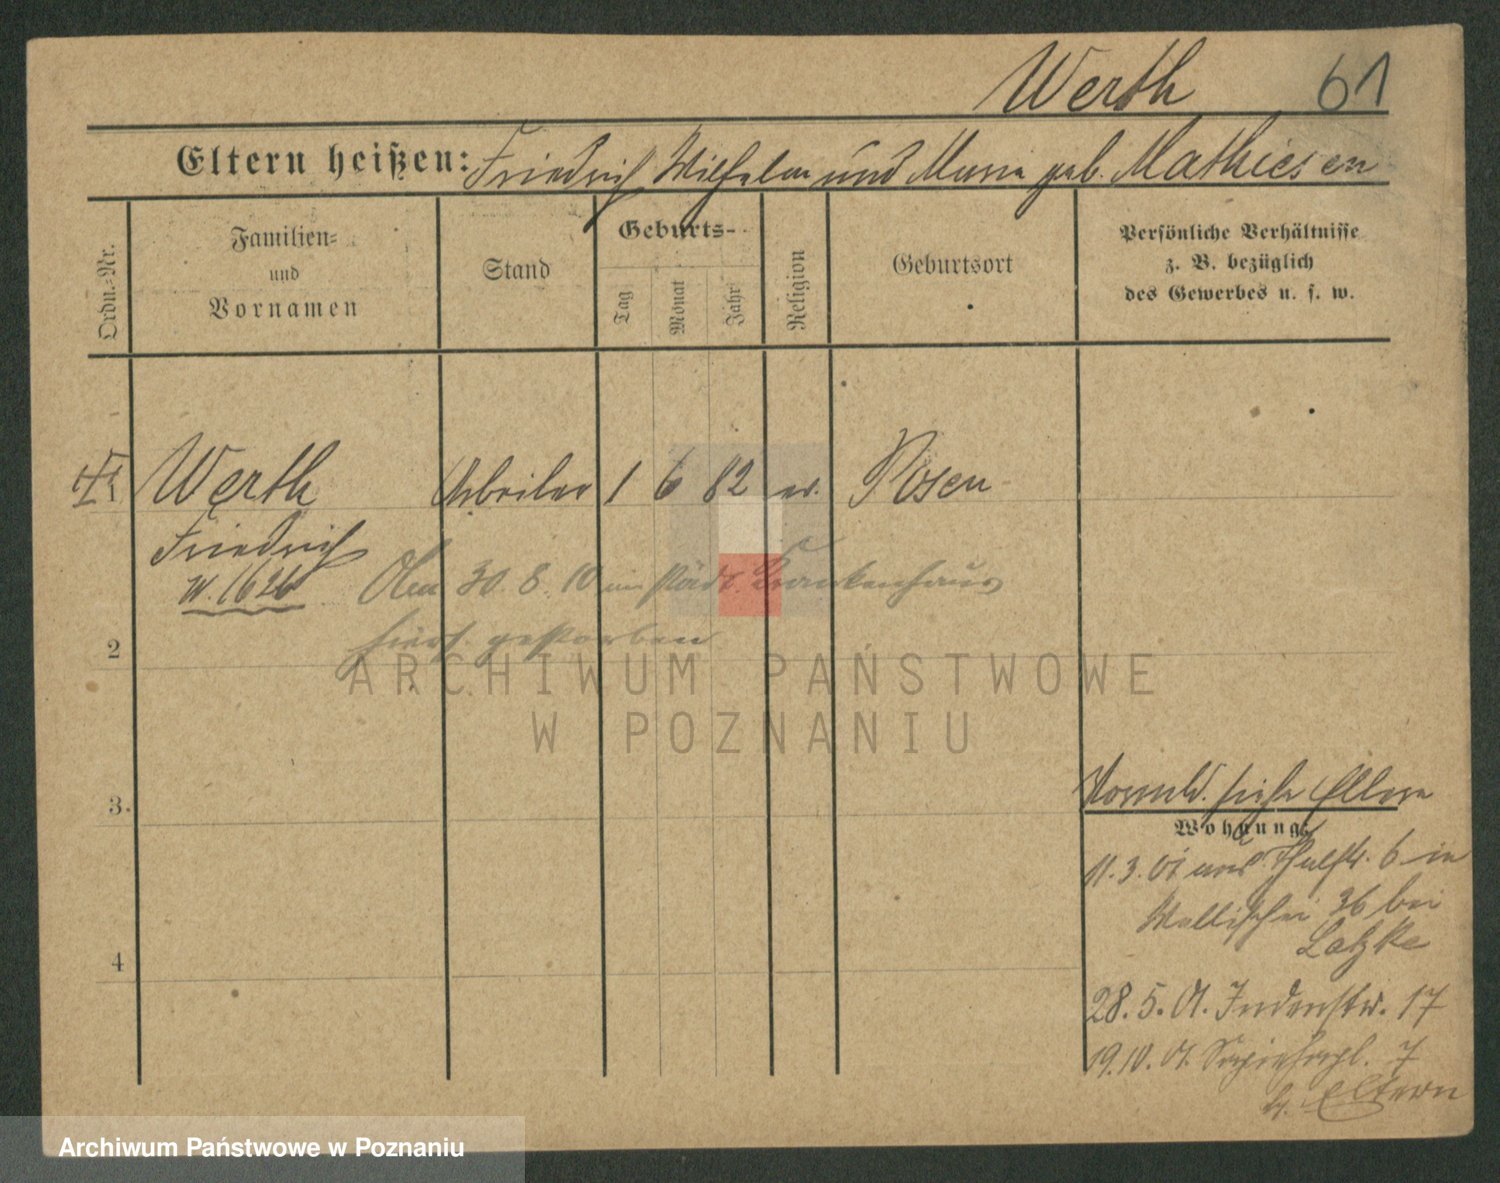 Werth 61
Eltern heißen: Friedrich Wilhelm und Maria geb. Mathiesen
Ordn.-Nr.
Familien-
und
Vornamen
Stand
Geburts-
Tag
Monat
Jahr
Religion
Geburtsort
Persönliche Verhältnisse
z. B. bezüglich
des Gewerbes u. s. w.
1 Werth Arbeiter 1 6 82 ev. Posen
Friedrich
W. 1626
Am 30. 8. 10 im städt. Krankenhaus
hiers. gestorben
2
3.
4
siehe Eltern
Wohnung:
11.3.01 6 in
Wallischei 36 bei
Latzke
28. 5. 01. Judenstr. 17
19.10.01. Sapiehapl. 7
b. Eltern
ARCHIWUM PAŃSTWOWE
W POZNANIU
Archiwum Państwowe w Poznaniu